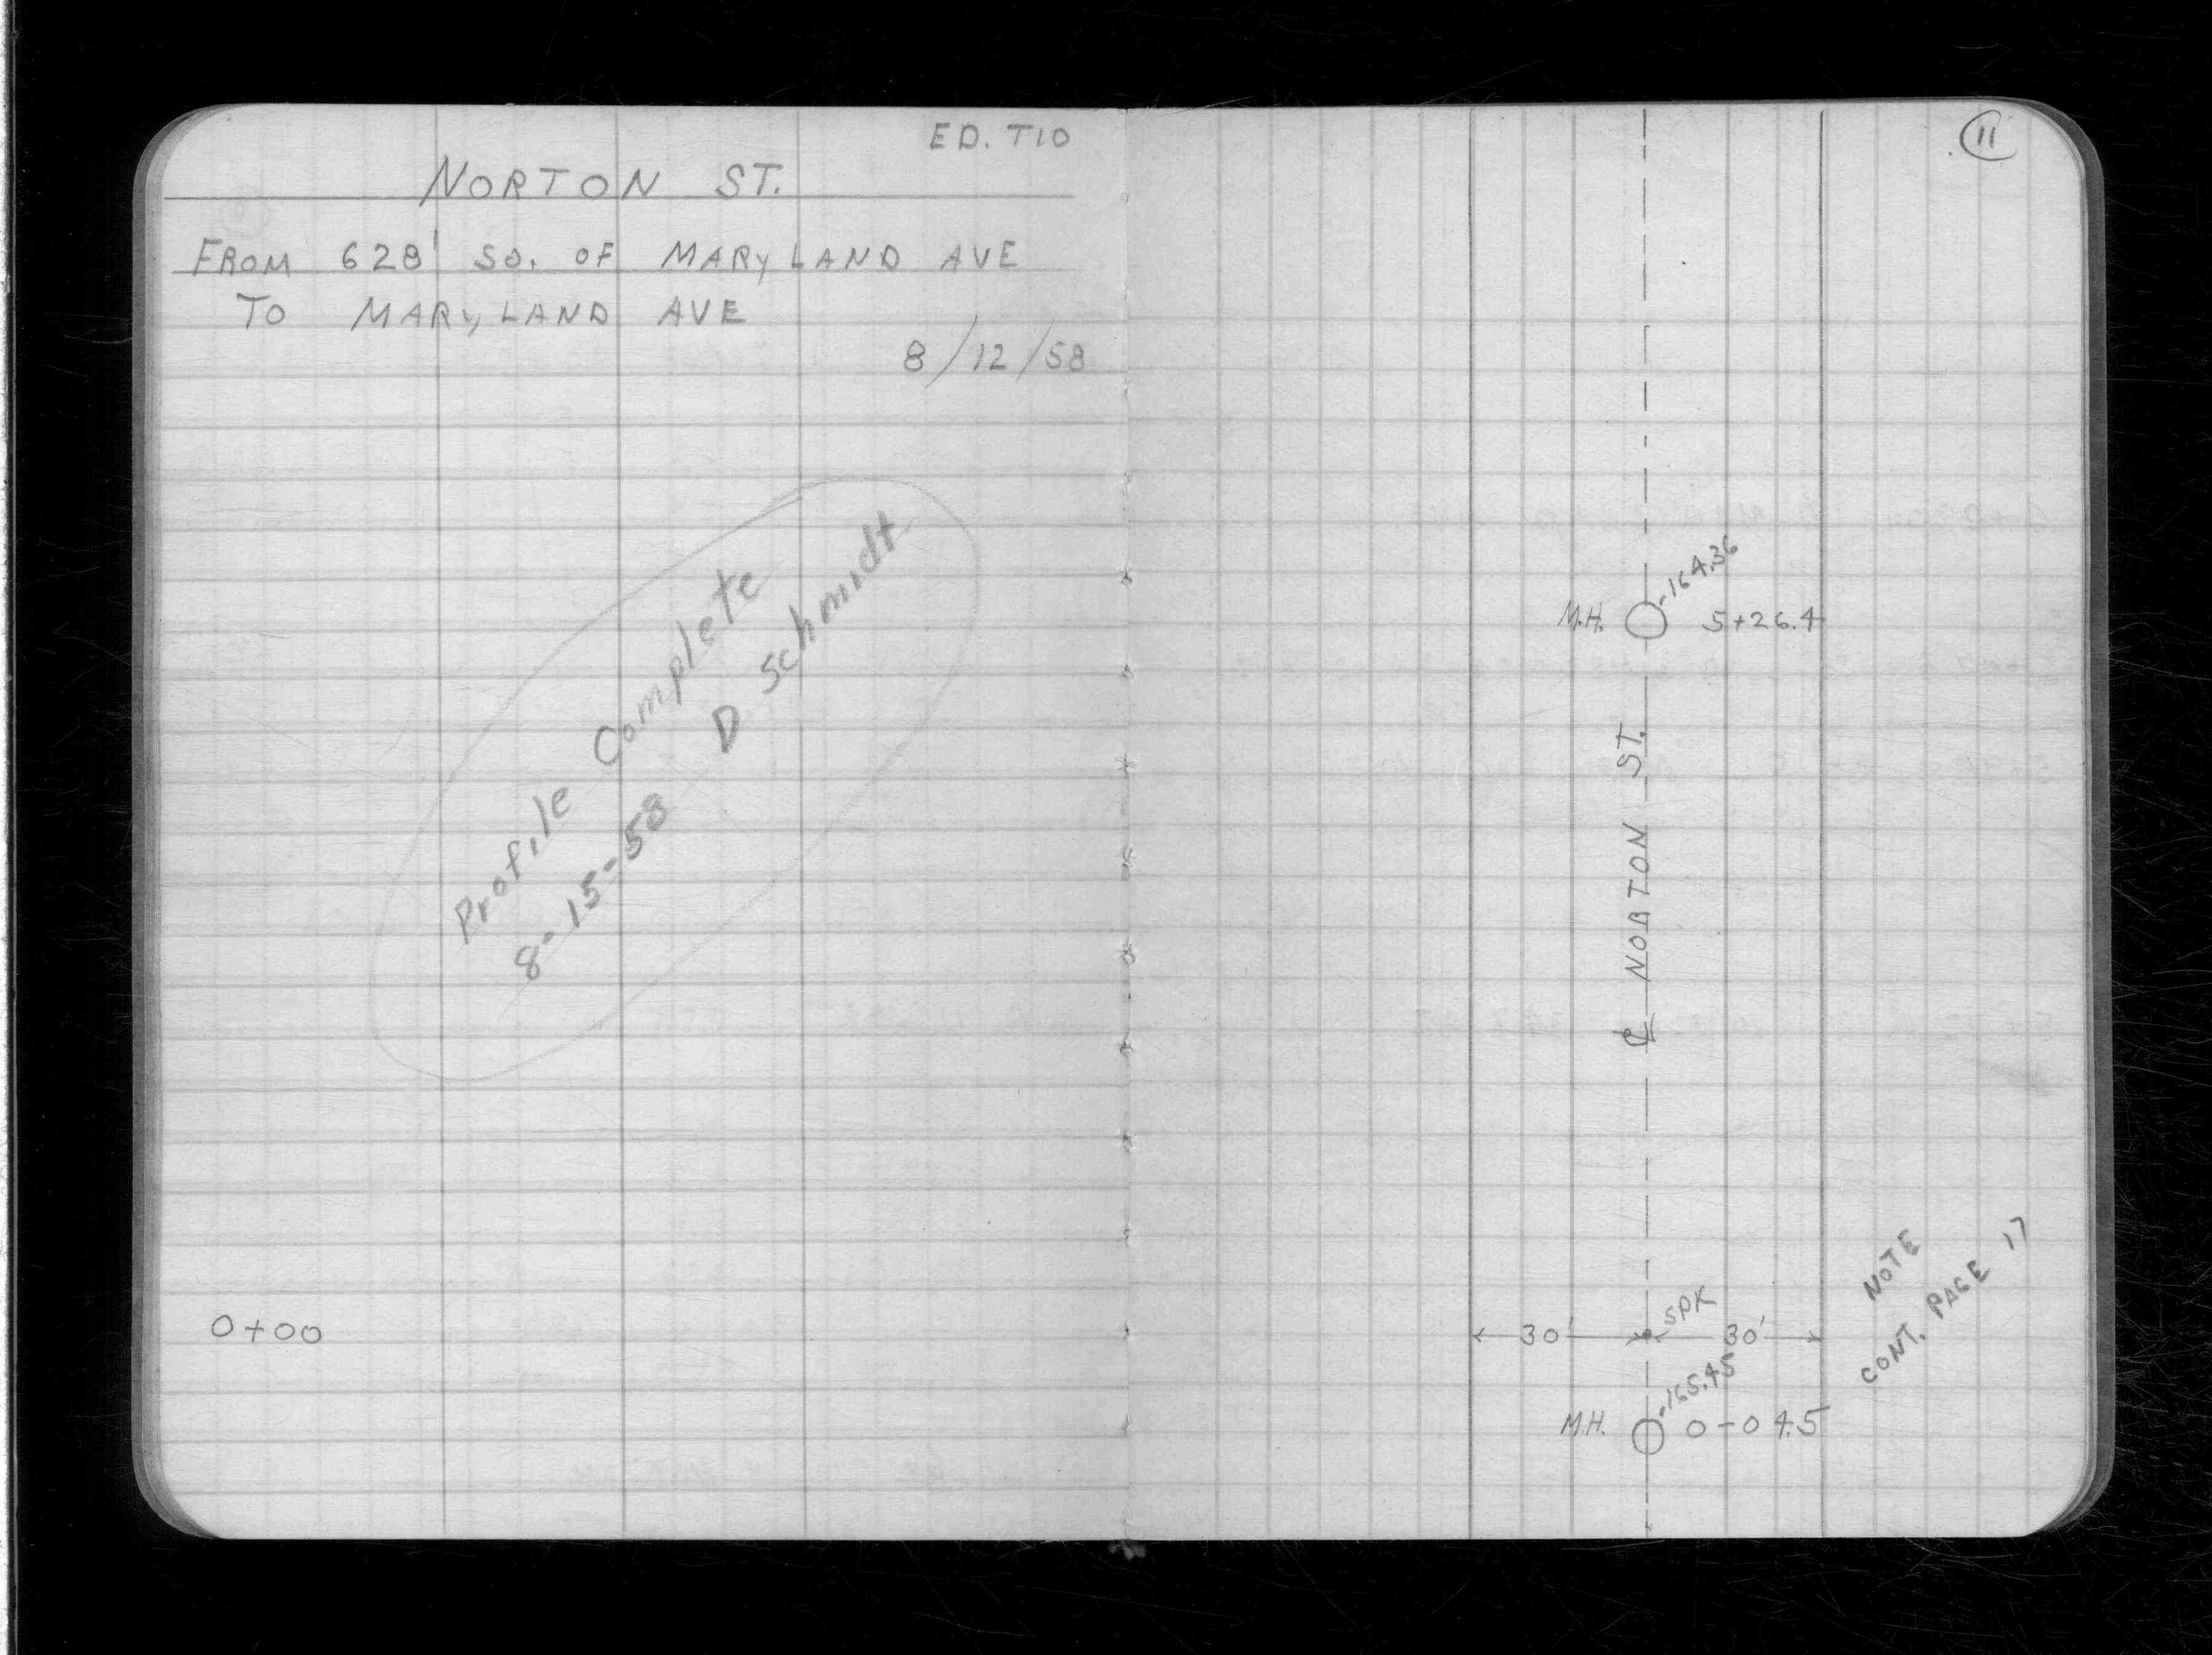 ED. T10
NORTON ST.
FROM 628' SO. OF MARYLAND AVE
TO MARYLAND AVE
8/12/58
Profile Complete
8-15-58 D Schmidt
0+00
11
-164.36
M.H. 5+26.4
℄ NORTON ST.
SPK
30' 30'
-165.45
M.H. 0-04.5
NOTE
CONT. PAGE 17